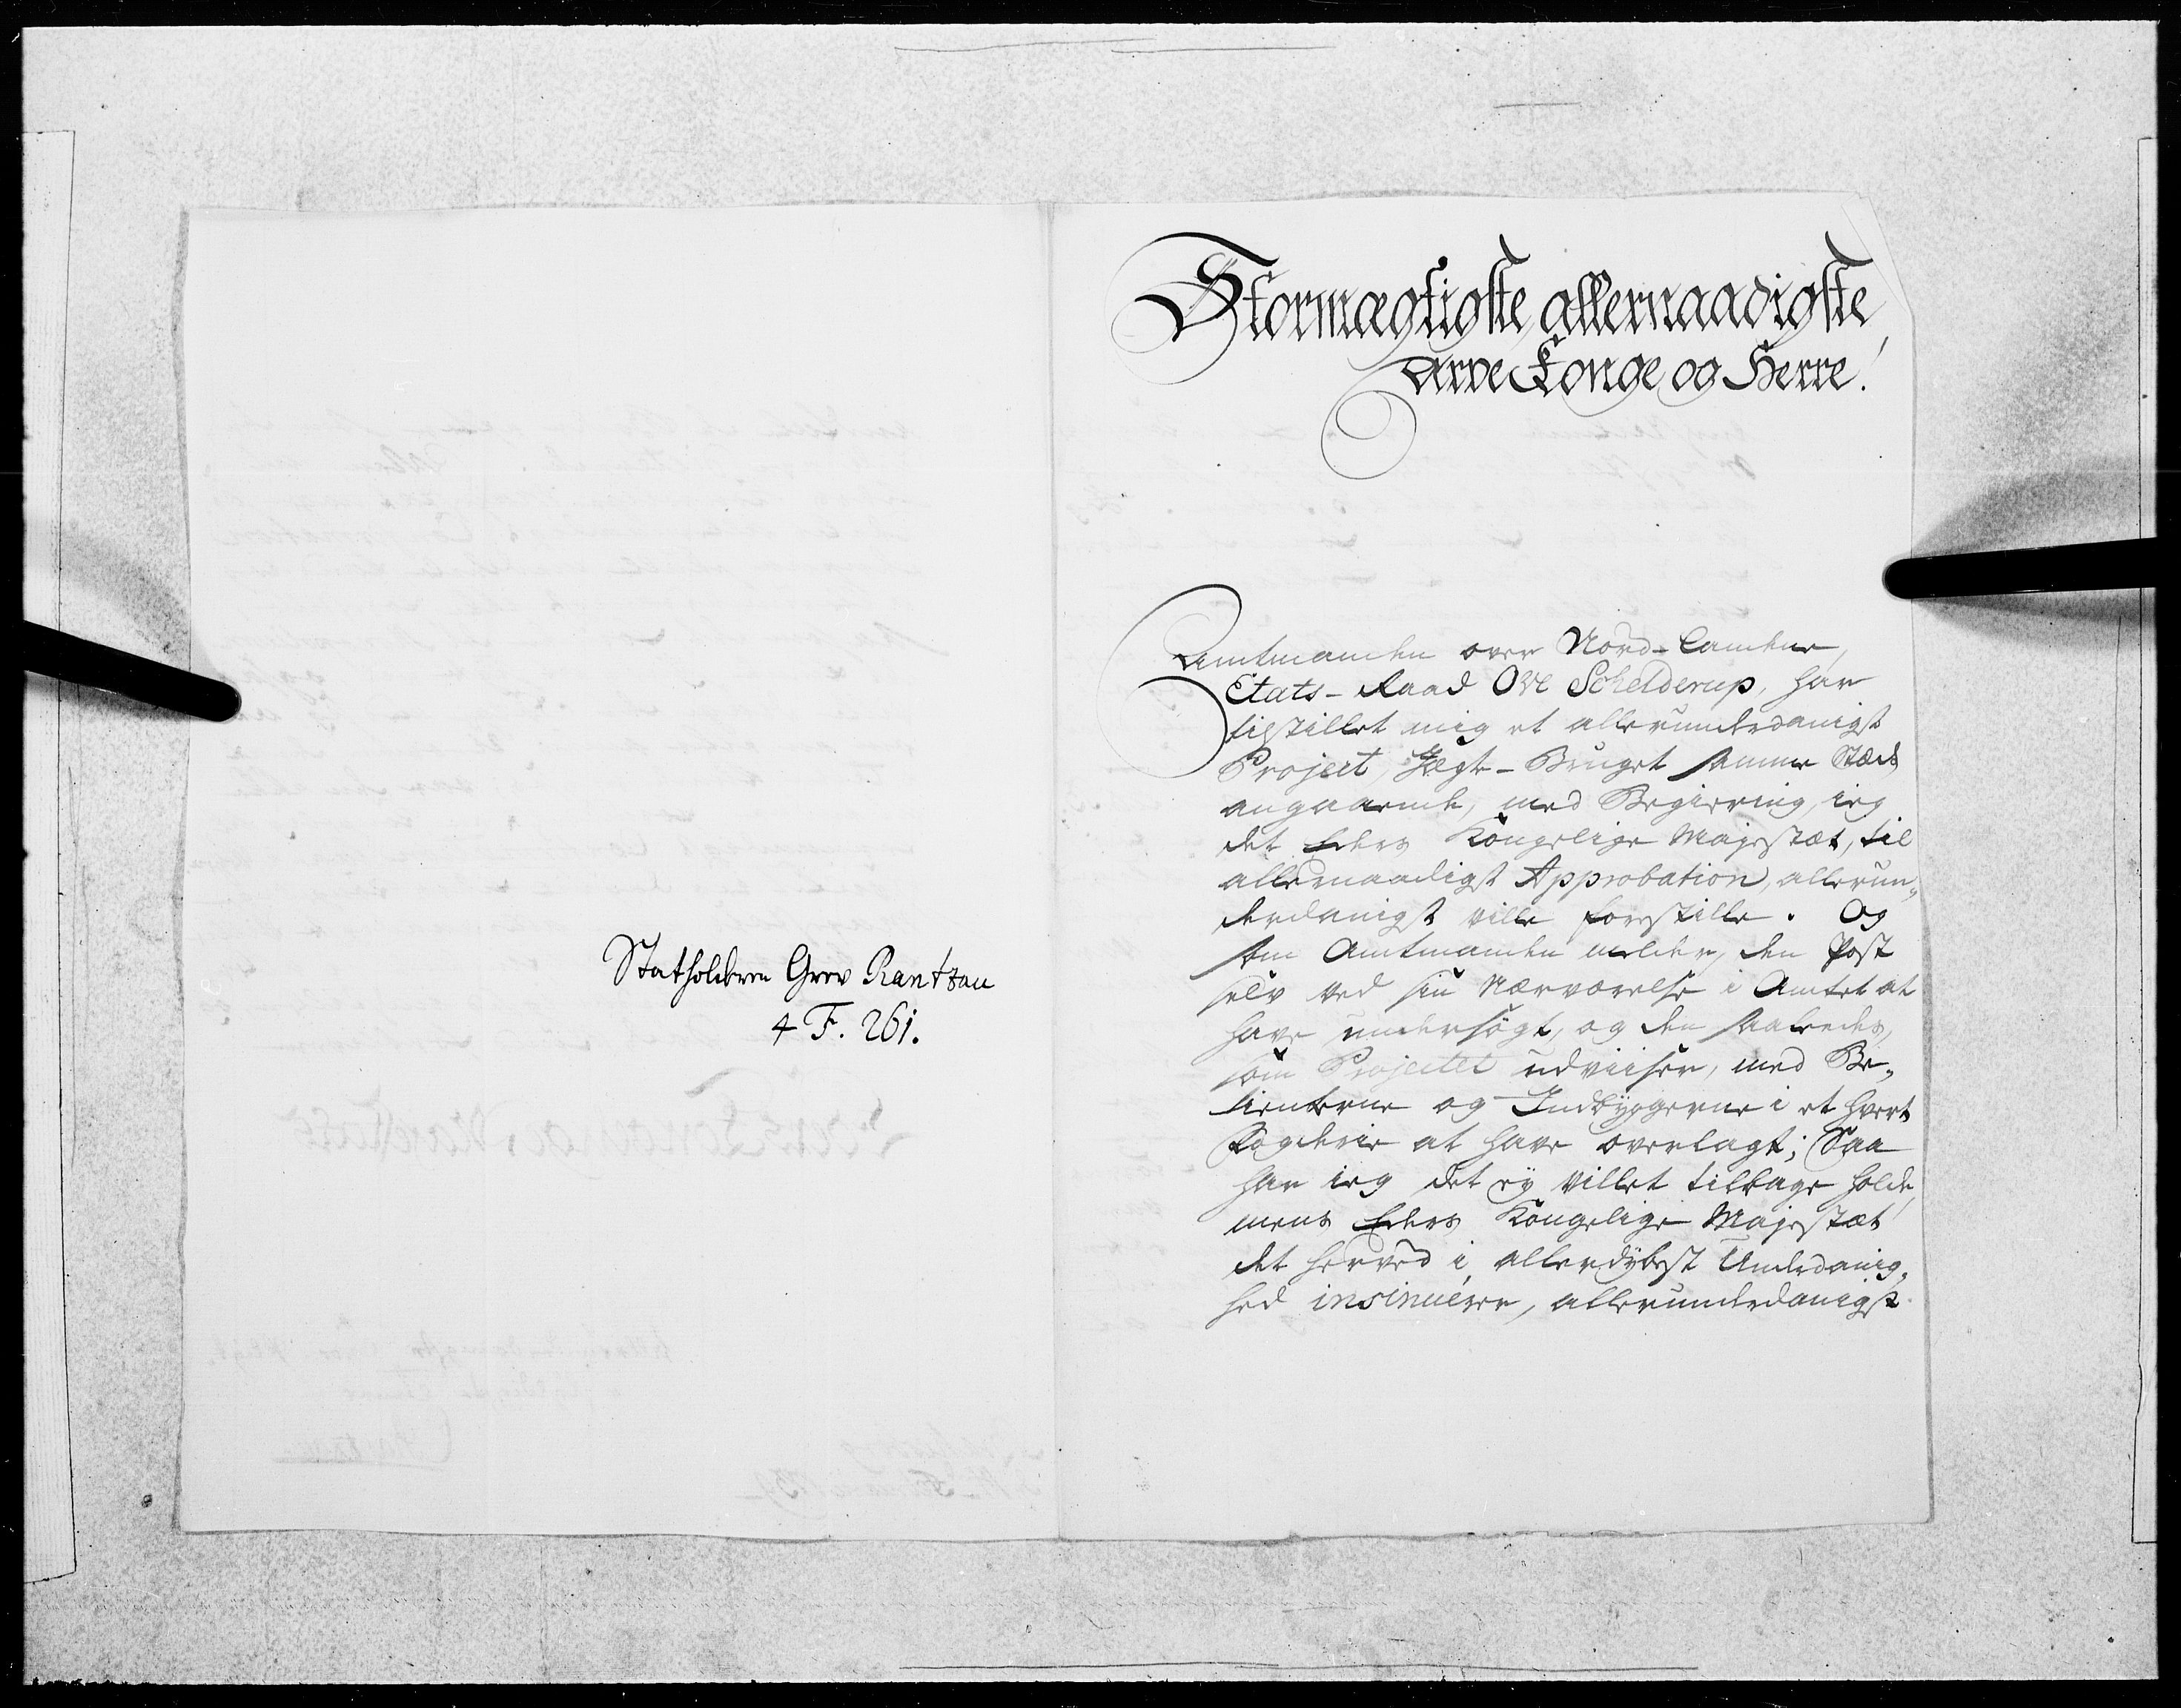 Statholderen Grev Rantzau
4 F. 261.
Stormægtigste, allernaadigste,
Arve Konge og Herre!
Amtmanden over Nord-Landene,
Etats-Raad Ove Schelderup, har
tilstillet mig et allerunderdanigst
Project, Jægte-Bruget samme Stæds
angaaende, med Begiering, ieg
det Eders Kongelige Majestæt, til
allernaadigst Approbation, allerun„
derdanigst ville forestille. Og
som Amtmanden melder, den Post
selv ved sin Nærværelse i Amtet at
have undersögt, og den saaledes,
som Projectet udviiser, med Be„
tienterne og Indbyggerne i et hvert
Fogderie at have overlagt; Saa
har ieg det ey villet tilbage holde,
mens Eders Kongelige Majestæt
det herved i allerdybest Underdanig„
hed insinuerer, allerunderdanigst